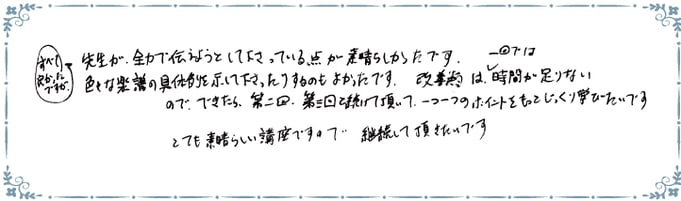 すべて良かったですが、
先生が、全力で伝えようとして下さっている点が素晴らしかったです。
色々な楽譜の具体例を示して下さったりするのもよかったです。改善点は、一回では時間が足りない
ので、できたら、第二回、第三回と続けて頂いて、一つ一つのポイントをもっとじっくり学びたいです
とても素晴らしい講座ですので 継続して頂きたいです